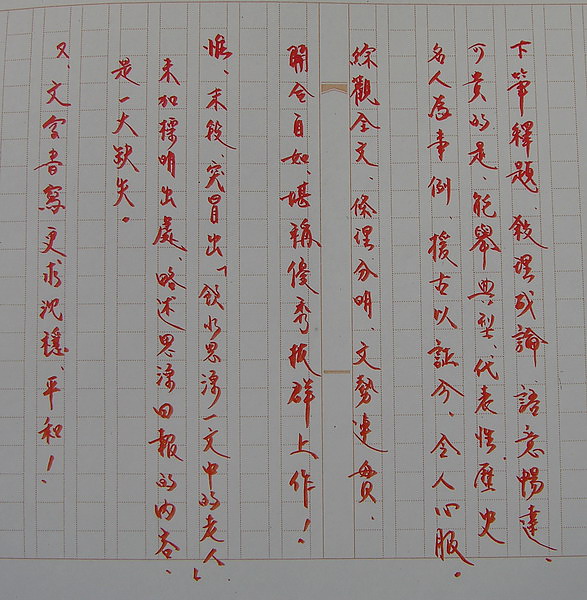 下筆釋題、發理成論、語意暢達、
可貴的是、能舉典型、代表性歷史
名人為事例、援古以証今、令人心服。
綜觀全文、條理分明、文勢連貫、
開合自如、堪稱優秀拔群上作！
惟、末段、突冒出「飲水思源一文中的老人」
未加標明出處、略述思源回報的內容、
是一大缺失。
又、文字書寫更求沈穩、平和！